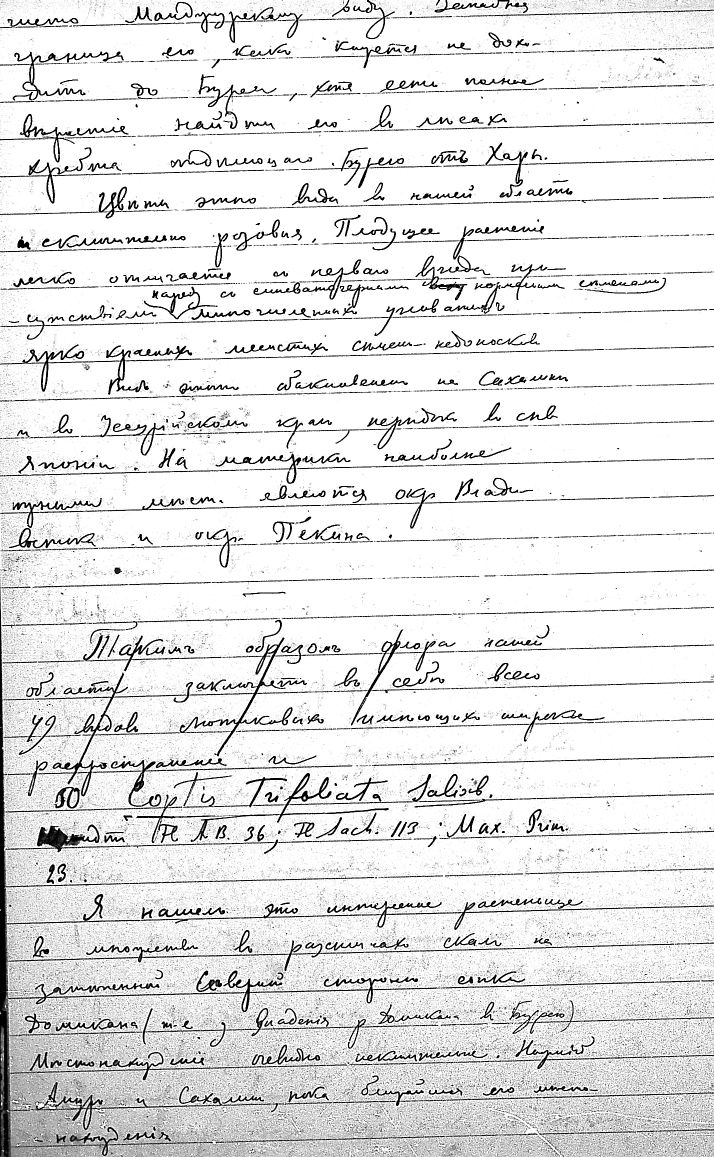 чисто Манджурскому виду. Западная
граница его, какъ кажется не дохо-
дитъ до Буреи, хотя есть полное
вѣроятіе найдти его въ лѣсахъ
хребта отдѣляющаго Бурею отъ Хары.
Цвѣты этого вида въ нашей области
исключительно розовыя. Плодущее растеніе
легко отличается съ перваго взгляда при-
наряду съ синевато черными нормальными сѣменами
-сутствіемъ многочисленныхъ угловатыхъ
ярко красныхъ мясистыхъ сѣмян-недоносковъ
Видъ этотъ обыкновененъ на Сахалинѣ
и въ Уссурійскомъ краѣ, нерѣдокъ въ сѣв
Японіи. На материкѣ наиболѣе
южными мѣст. являются окр Влади-
востока и окр. Пекина.
Такимъ образомъ флора нашей
области заключаетъ въ себѣ всего
49 видовъ лютиковыхъ имѣющихъ широкое
распространеніе и
50 Coptis Trifoliata Salisb.
Fl A. B. 36; Fl Sach. 113; Max. Prim.
23.
Я нашелъ это интересное растеньице
во множествѣ въ разсѣлинахъ скалъ на
затѣненной Сѣверной стороне сопки
Домикана (т-е у впаденія р Домикана въ Бурею)
Мѣстонахожденіе очевидно исключительное. Нижній
Амуръ и Сахалин, пока ближайшія его место-
-нахожденія